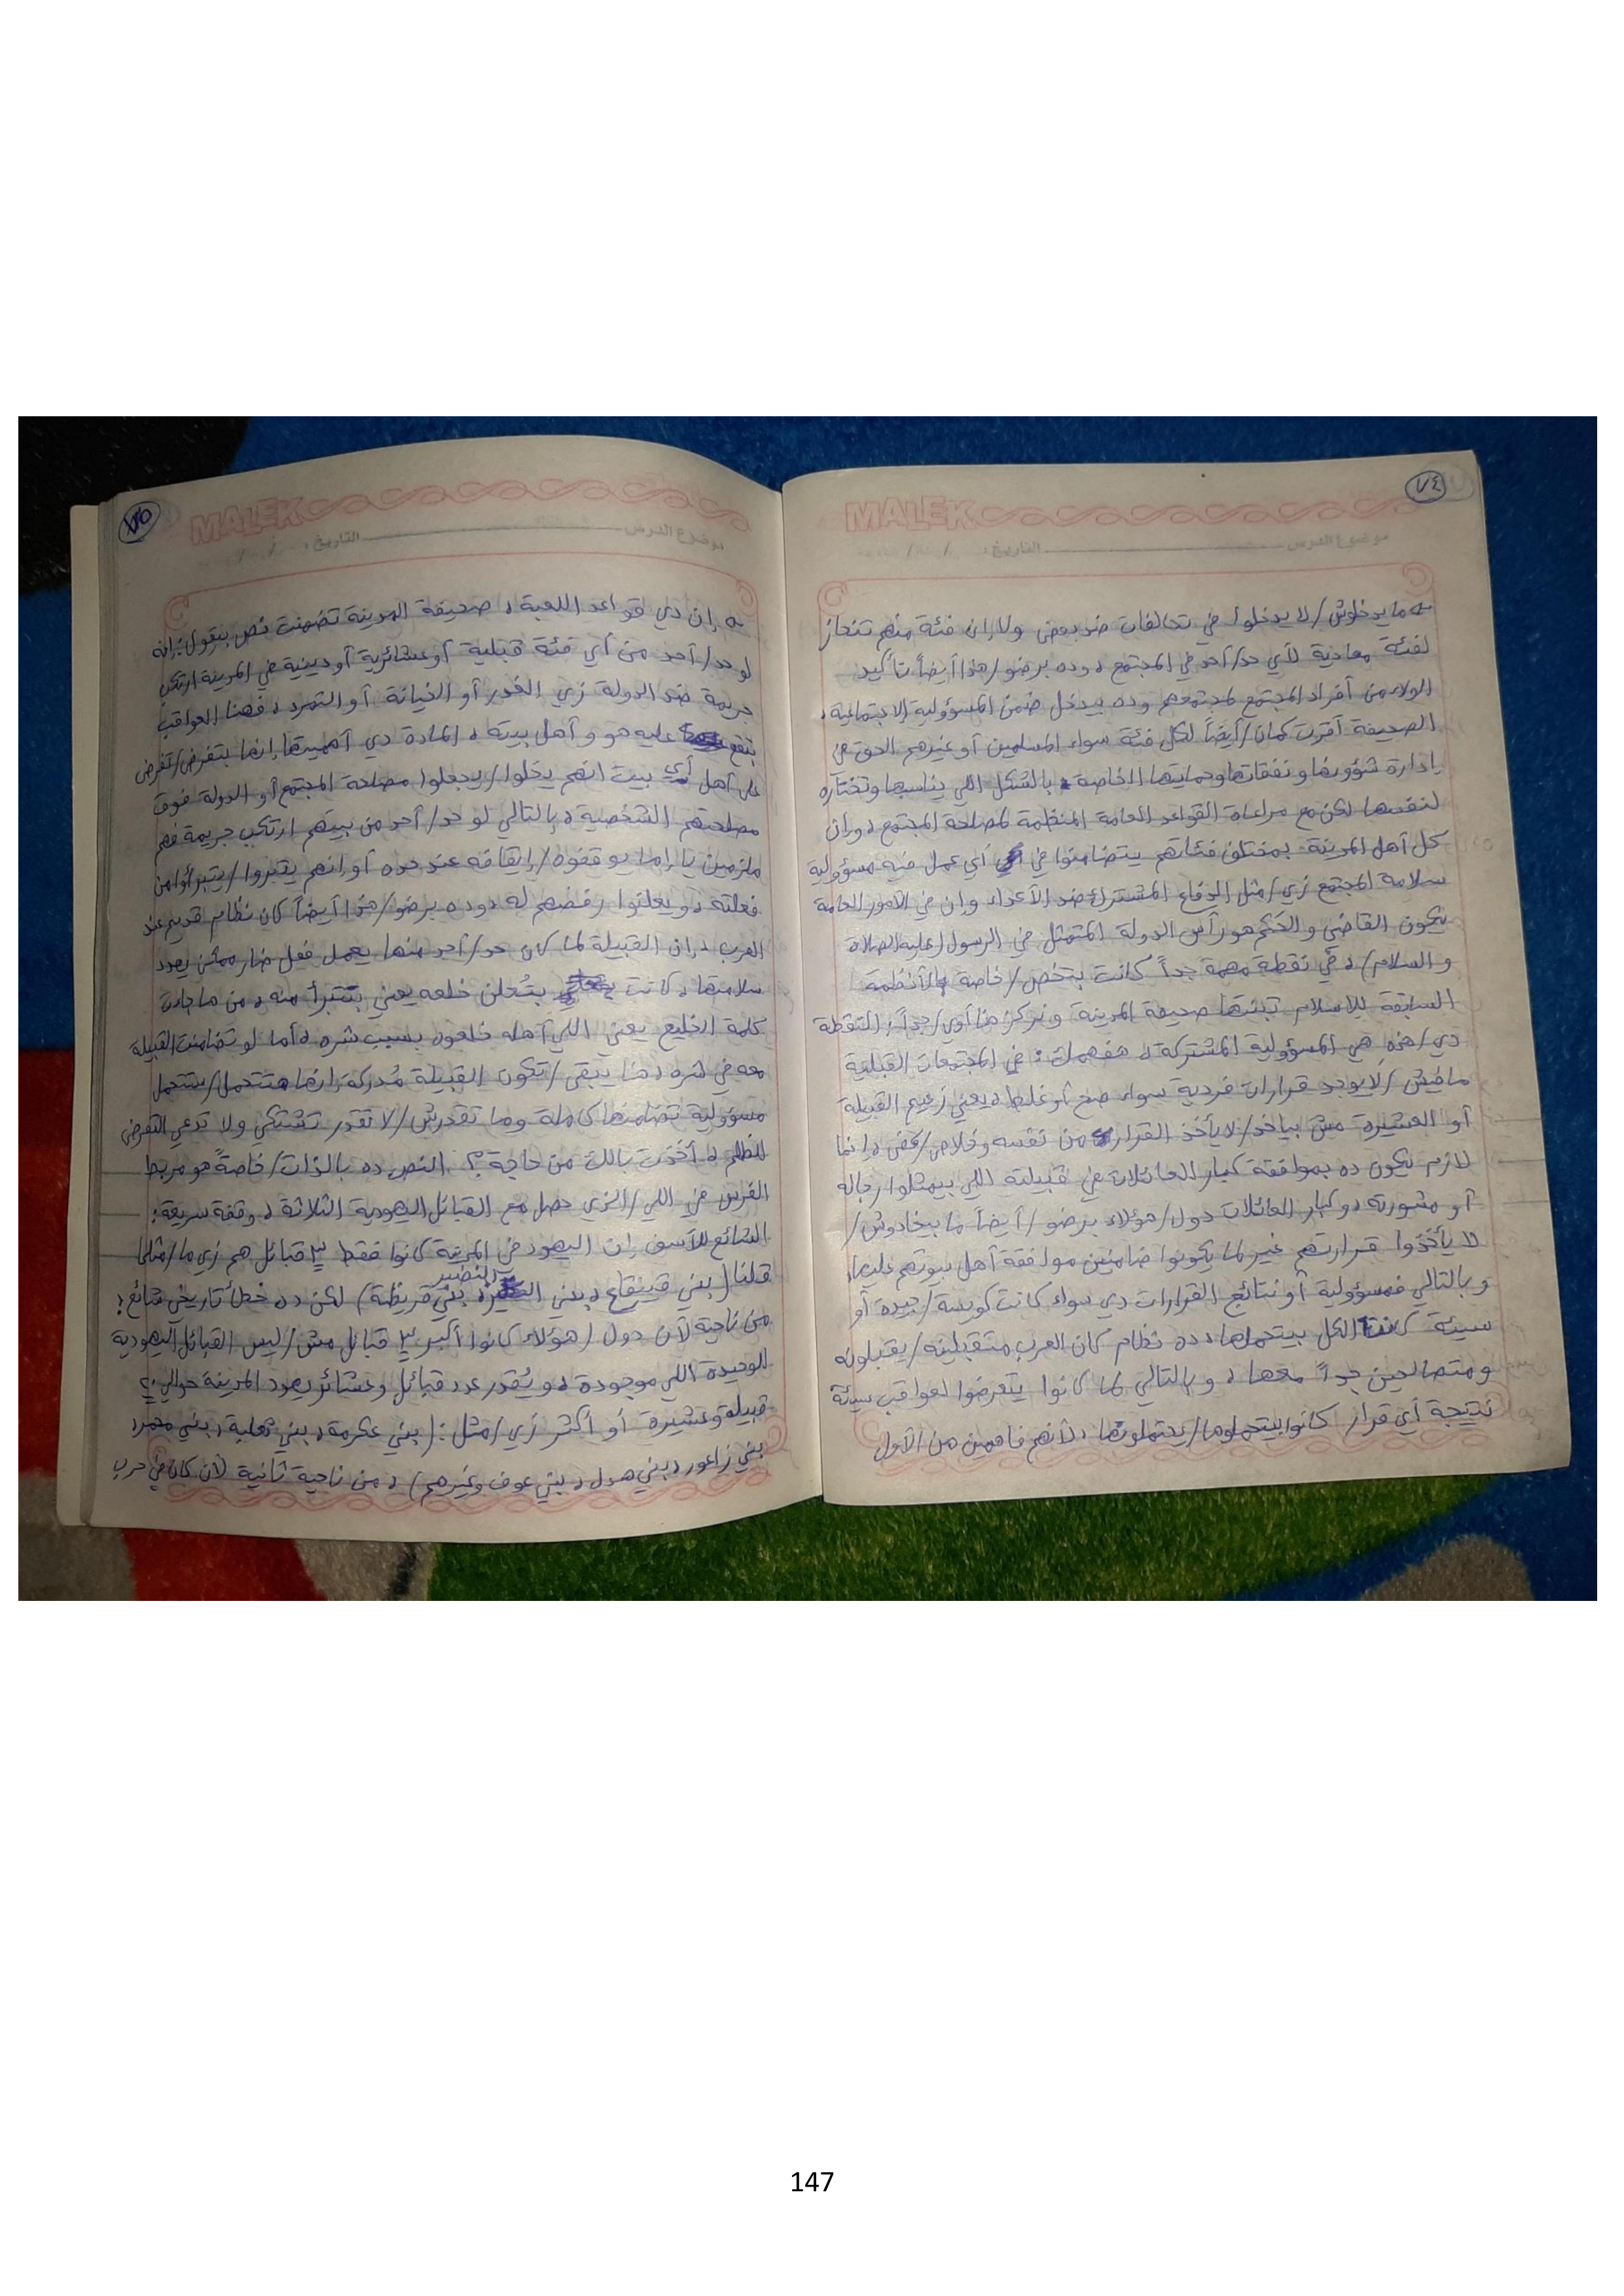 ٧٤
MALEK
موضوع الدرس التاريخ: / /
ما يدخلوش/لا يدخلوا في تحالفات ضد بعض ولا إن فئة منهم تنحاز
لفئة معادية لأي حد/أحد في المجتمع، وده برضو/هذا أيضاً تأكيد
الولاء من أفراد المجتمع لمجتمعهم وده بيدخل ضمن المسؤولية الاجتماعية،
الصحيفة أقرت كمان/أيضاً لكل فئة سواء المسلمين أو غيرهم الحق في
إدارة شؤونها ونفقاتها وحمايتها الخاصة بالشكل اللي يناسبها وتختاره
لنفسها لكن مع مراعاة القواعد العامة المنظمة لمصلحة المجتمع، وإن
كل أهل المدينة بمختلف فئاتهم يتضامنوا في أي عمل فيه مسؤولية
سلامة المجتمع زي/مثل الدفاع المشترك ضد الأعداء، وإن في الأمور العامة
يكون القاضي والحَكَم هو رأس الدولة المتمثل في الرسول (عليه الصلاة
والسلام)، في نقطة مهمة جداً كانت بتخص/خاصة بالأنظمة
السابقة للإسلام تبنتها صحيفة المدينة ونركز هنا أوي/جداً؛ النقطة
دي/هذه هي المسؤولية المشتركة، هفهمك: في المجتمعات القبلية
مافيش/لا يوجد قرارات فردية سواء صح أو غلط، يعني زعيم القبيلة
أو العشيرة مش بياخد/لا يأخذ القرار من نفسه وخلاص/وكفى، إنما
لازم يكون ده بموافقة كبار العائلات في قبيلته اللي بيمثلوا رجاله
أو مشورته، وكبار العائلات دول/هؤلاء برضو/أيضاً ما بيخادوش/
لا يأخذوا قرارتهم غير لما يكونوا ضامنين موافقة أهل بيوتهم عليها،
وبالتالي فمسؤولية أو نتائج القرارات دي سواء كانت كويسة/جيدة أو
سيئة كانت الكل بيتحملها، ده نظام كان العرب متقبلينه/يقبلونه
ومتصالحين جداً معها، وبالتالي لما كانوا يتعرضوا لعواقب سيئة
نتيجة أي قرار كانوا بيتحملوها/يحتملونها، لأنهم فاهمين من الأول
٧٥
MALEK
موضوع الدرس التاريخ: / /
إن دي قواعد اللعبة، صحيفة المدينة تضمنت نص بيقول: إنه
لو حد/أحد من أي فئة قبلية أو عشائرية أو دينية في المدينة ارتكب
جريمة ضد الدولة زي الغدر أو الخيانة أو التمرد، فهنا العواقب
بتقع عليه هو وأهل بيته، المادة دي أهميتها إنها بتفرض/تفرض
على أهل أي بيت انهم يخلوا/يجعلوا مصلحة المجتمع أو الدولة فوق
مصلحتهم الشخصية، بالتالي لو حد/أحد من بيتهم ارتكب جريمة فهم
ملزمين يا إما يوقفوه/إيقافه عند حده أو إنهم يتبروا/يتبرأوا من
فعلته، ويعلنوا رفضهم له، وده برضو/هذا أيضاً كان نظام قديم عند
العرب، إن القبيلة لما كان حد/أحد منها يعمل فعل ضار ممكن يهدد
سلامتها، كانت بتُعلن خلعه يعني بتتبرأ منه، من ما جات
كلمة الخليع يعني اللي أهله خلعوه بسبب شره، أما لو تضامنت القبيلة
معه في شره، هنا يتبقى/تكون القبيلة مُدركة إنها هتتحمل/ستتحمل
مسؤولية تضامنها كاملة وما تقدرش/لا تقدر تشتكي ولا تدعي التعرض
للظلم، أخذت بالك من حاجة؟، النص ده بالذات/خاصةً هو مربط
الفرس في اللي/الذي حصل مع القبائل اليهودية الثلاثة، وقفة سريعة:
الشائع للأسف إن اليهود في المدينة كانوا فقط ٣ قبائل هم زي ما/مثلما
قلنا (بني قينقاع، بني النضير، بني قريظة) لكن ده خطأ تاريخي شائع؛
من ناحية لأن دول/هؤلاء كانوا أكبر ٣ قبائل مش/ليس القبائل اليهودية
الوحيدة اللي موجودة، ويُقدر عدد قبائل وعشائر يهود المدينة حوالي ٢٠
قبيلة وعشيرة أو أكثر زي/مثل: (بني عكرمة، بني ثعلبة، بني محمر،
بني زاعور، بني هدل، بني عوف وغيرهم)، من ناحية ثانية لأن كان في حرب
147